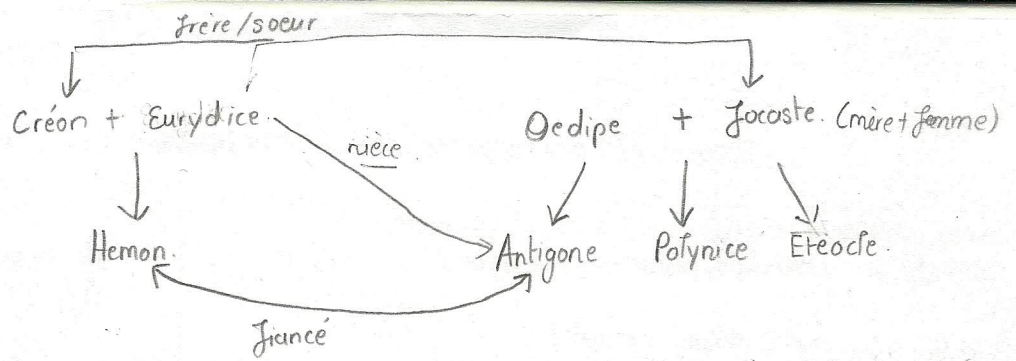 frère/soeur
Créon + Eurydice. Oedipe + Jocaste. (mère + femme)
nièce.
Hemon. Antigone Polynice Etéocle.
fiancé